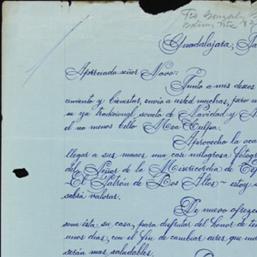 Guadalajara, Ja
Apreciado señor Novo:
Junto a mis deseos
cimiento y bienestar, envío a usted muchas, pero m
su ya tradicional novela de Navidad y A
el no menos bello Mea Culpa.
Aprovecho la oca
llegar a sus manos una casi milagrosa fotog
del Señor de la Misericordia de Te
El Patrón de Los Altos - estoy s
sabrá valorar.
De nuevo ofrezco
somista, su casa, para disfrutar del honor de ten
unos días, con el fin de cambiar aires que un
serán mas saludables.